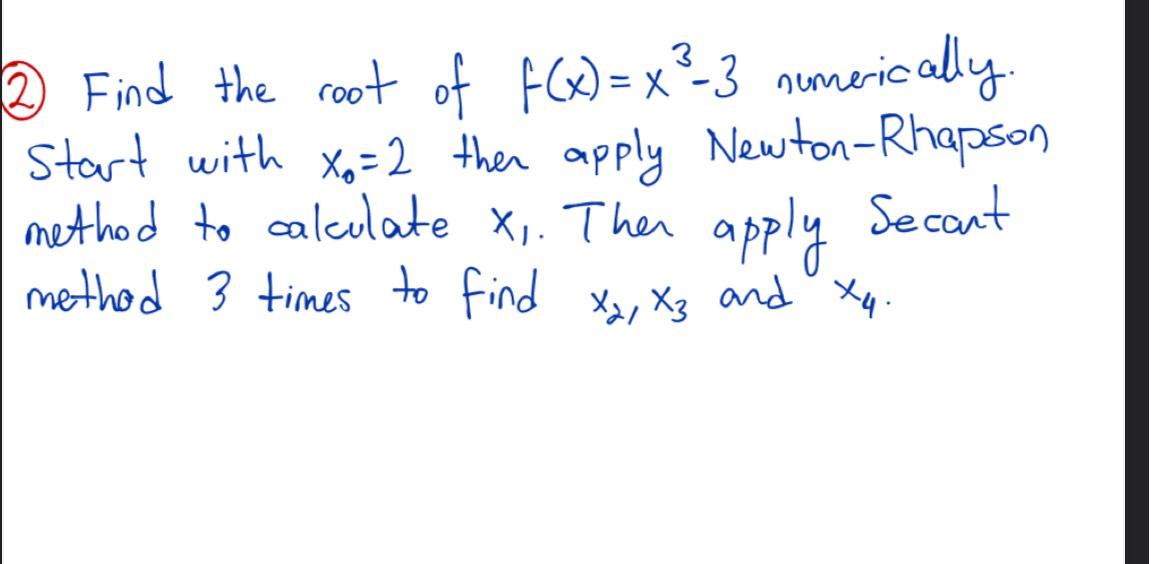 ② Find the root of f(x) = x³-3 numerically.
Start with x₀=2 then apply Newton-Rhapson
method to calculate x₁. Then apply Secant
method 3 times to find x₂, x₃ and x₄.